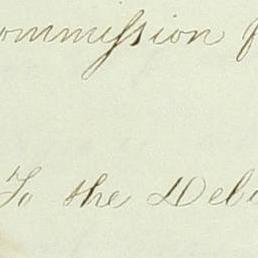 ommission f
To the Deb